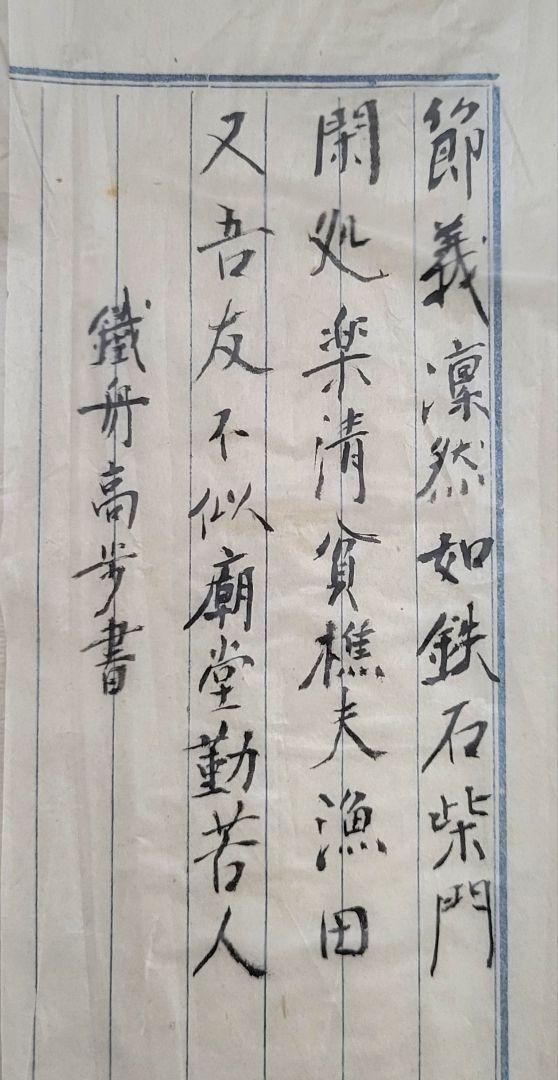 節義凛然如鉄石柴門
閑処楽清貧樵夫漁田
又吾友不似廟堂勤苦人
鐵舟高歩書